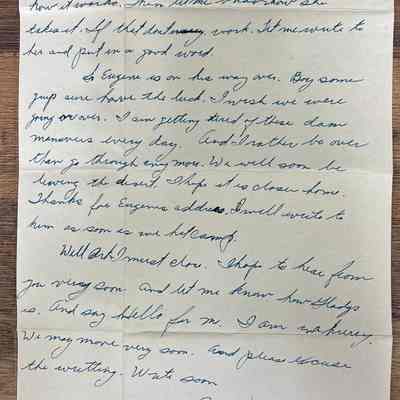 how it works. Then let me know how she
takes it. If that doesnt work. Let me write to
her and put in a good word.
So Eugene is on his way over. Boy some
guys sure have the luck. I wish we were
going over. I am getting tired of these dam
manuvers every day. And I rather be over
than go through eny more. We will soon be
leaving the desert. I hope it is closer home.
Thanks for Eugenes address. I will write to
him as soon as we hit camp.
Well Art I must close. I hope to hear from
you very soon. And let me know how Gladys
is. And say hello for me. I am in hurry.
We may move very soon. And please excuse
the writting. Write soon